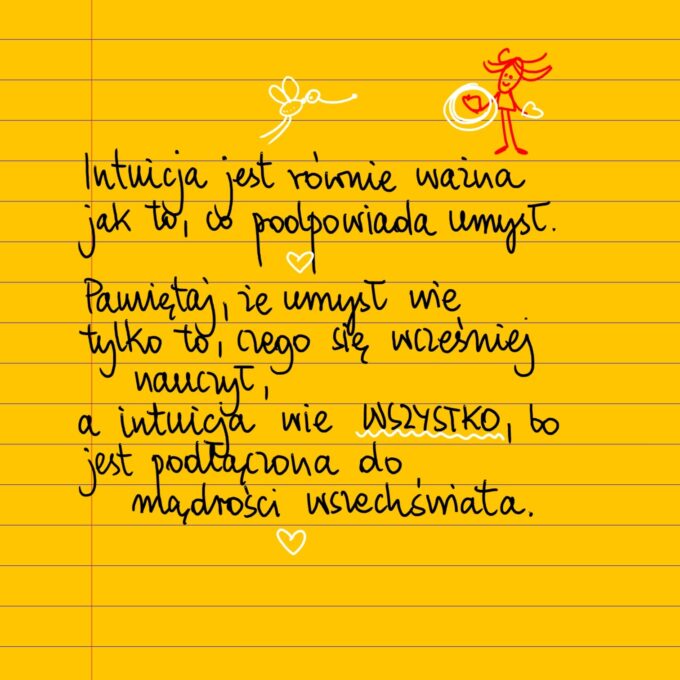 Intuicja jest równie ważna
jak to, co podpowiada umysł.
Pamiętaj, że umysł wie
tylko to, czego się wcześniej
nauczył,
a intuicja wie WSZYSTKO, bo
jest podłączona do
mądrości wszechświata.